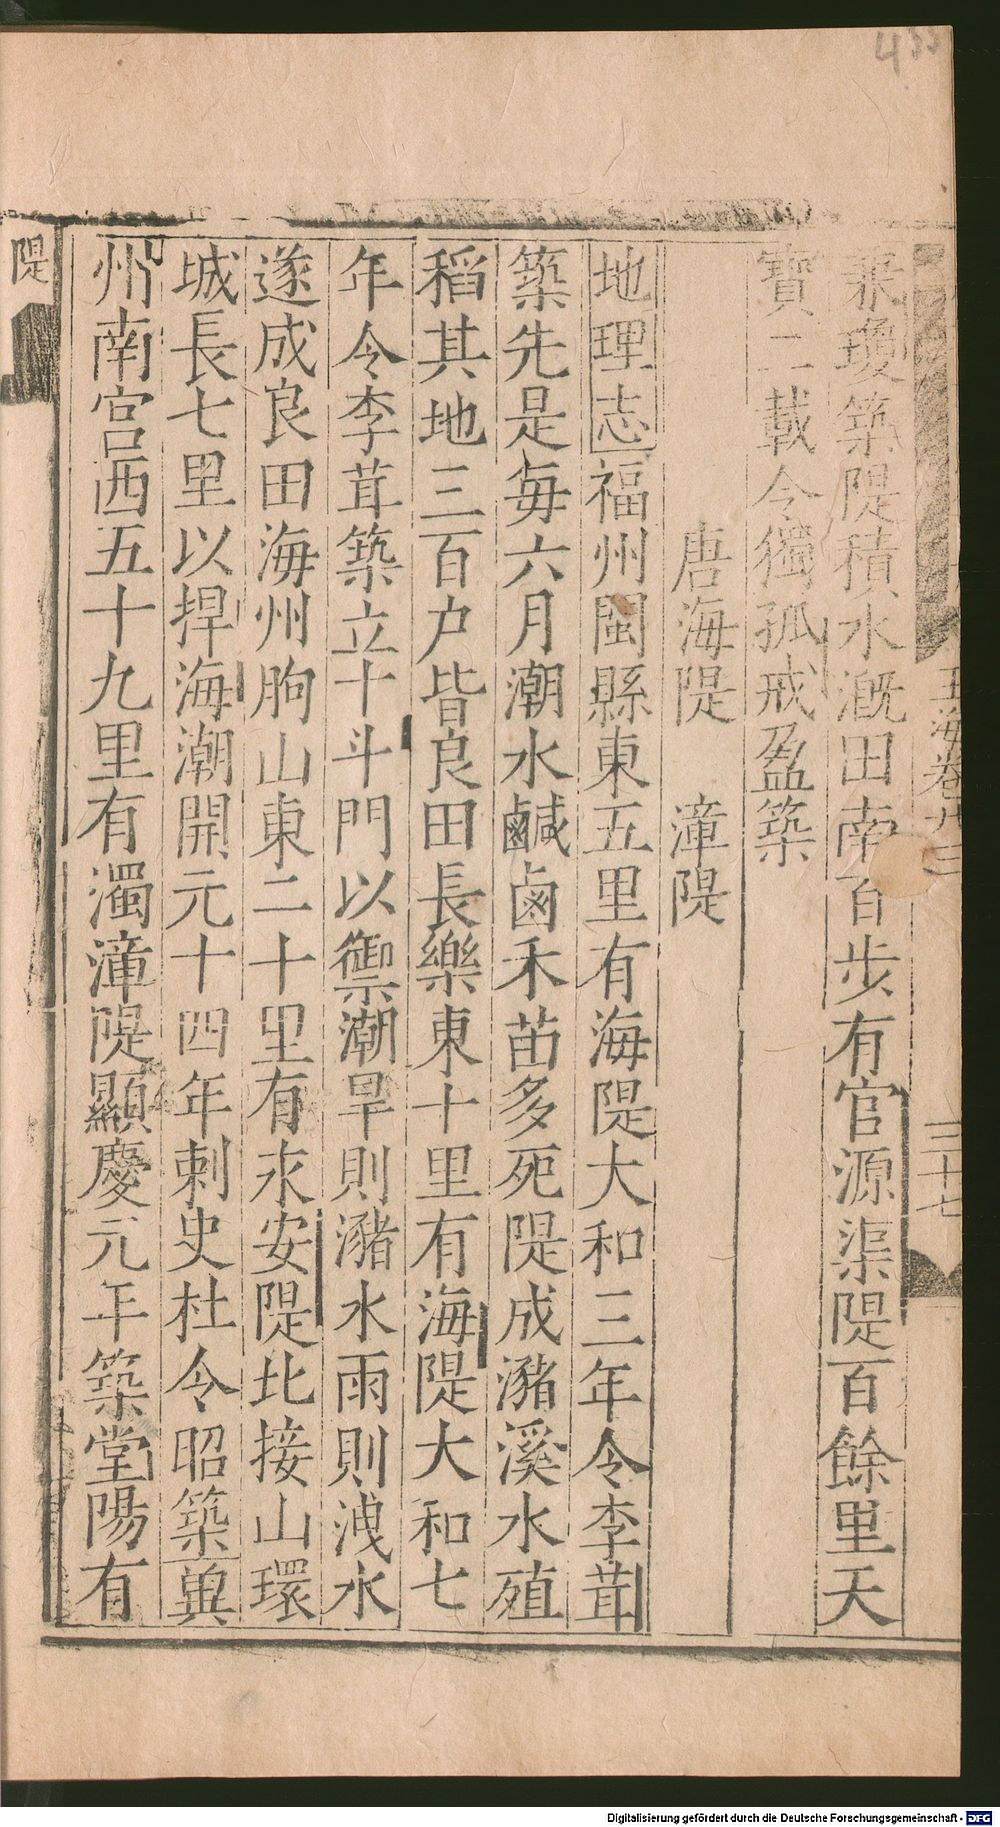 兼瓊築隄積水漑田南百步有官源渠隄百餘里天
寶二載令獨孤戒盈築
唐海隄　漳隄
地理志福州閩縣東五里有海隄大和三年令李茸
築先是每六月潮水鹹鹵禾苗多死隄成瀦溪水殖
稻其地三百户皆良田長樂東十里有海隄大和七
年令李茸築立十斗門以禦潮旱則瀦水雨則洩水
遂成良田海州朐山東二十里有永安隄北接山環
城長七里以捍海潮開元十四年刺史杜令昭築兾
州南宫西五十九里有濁漳隄顯慶元年築堂陽有
隄
玉海卷九十三
三十七
433
Digitalisierung gefördert durch die Deutsche Forschungsgemeinschaft - DFG